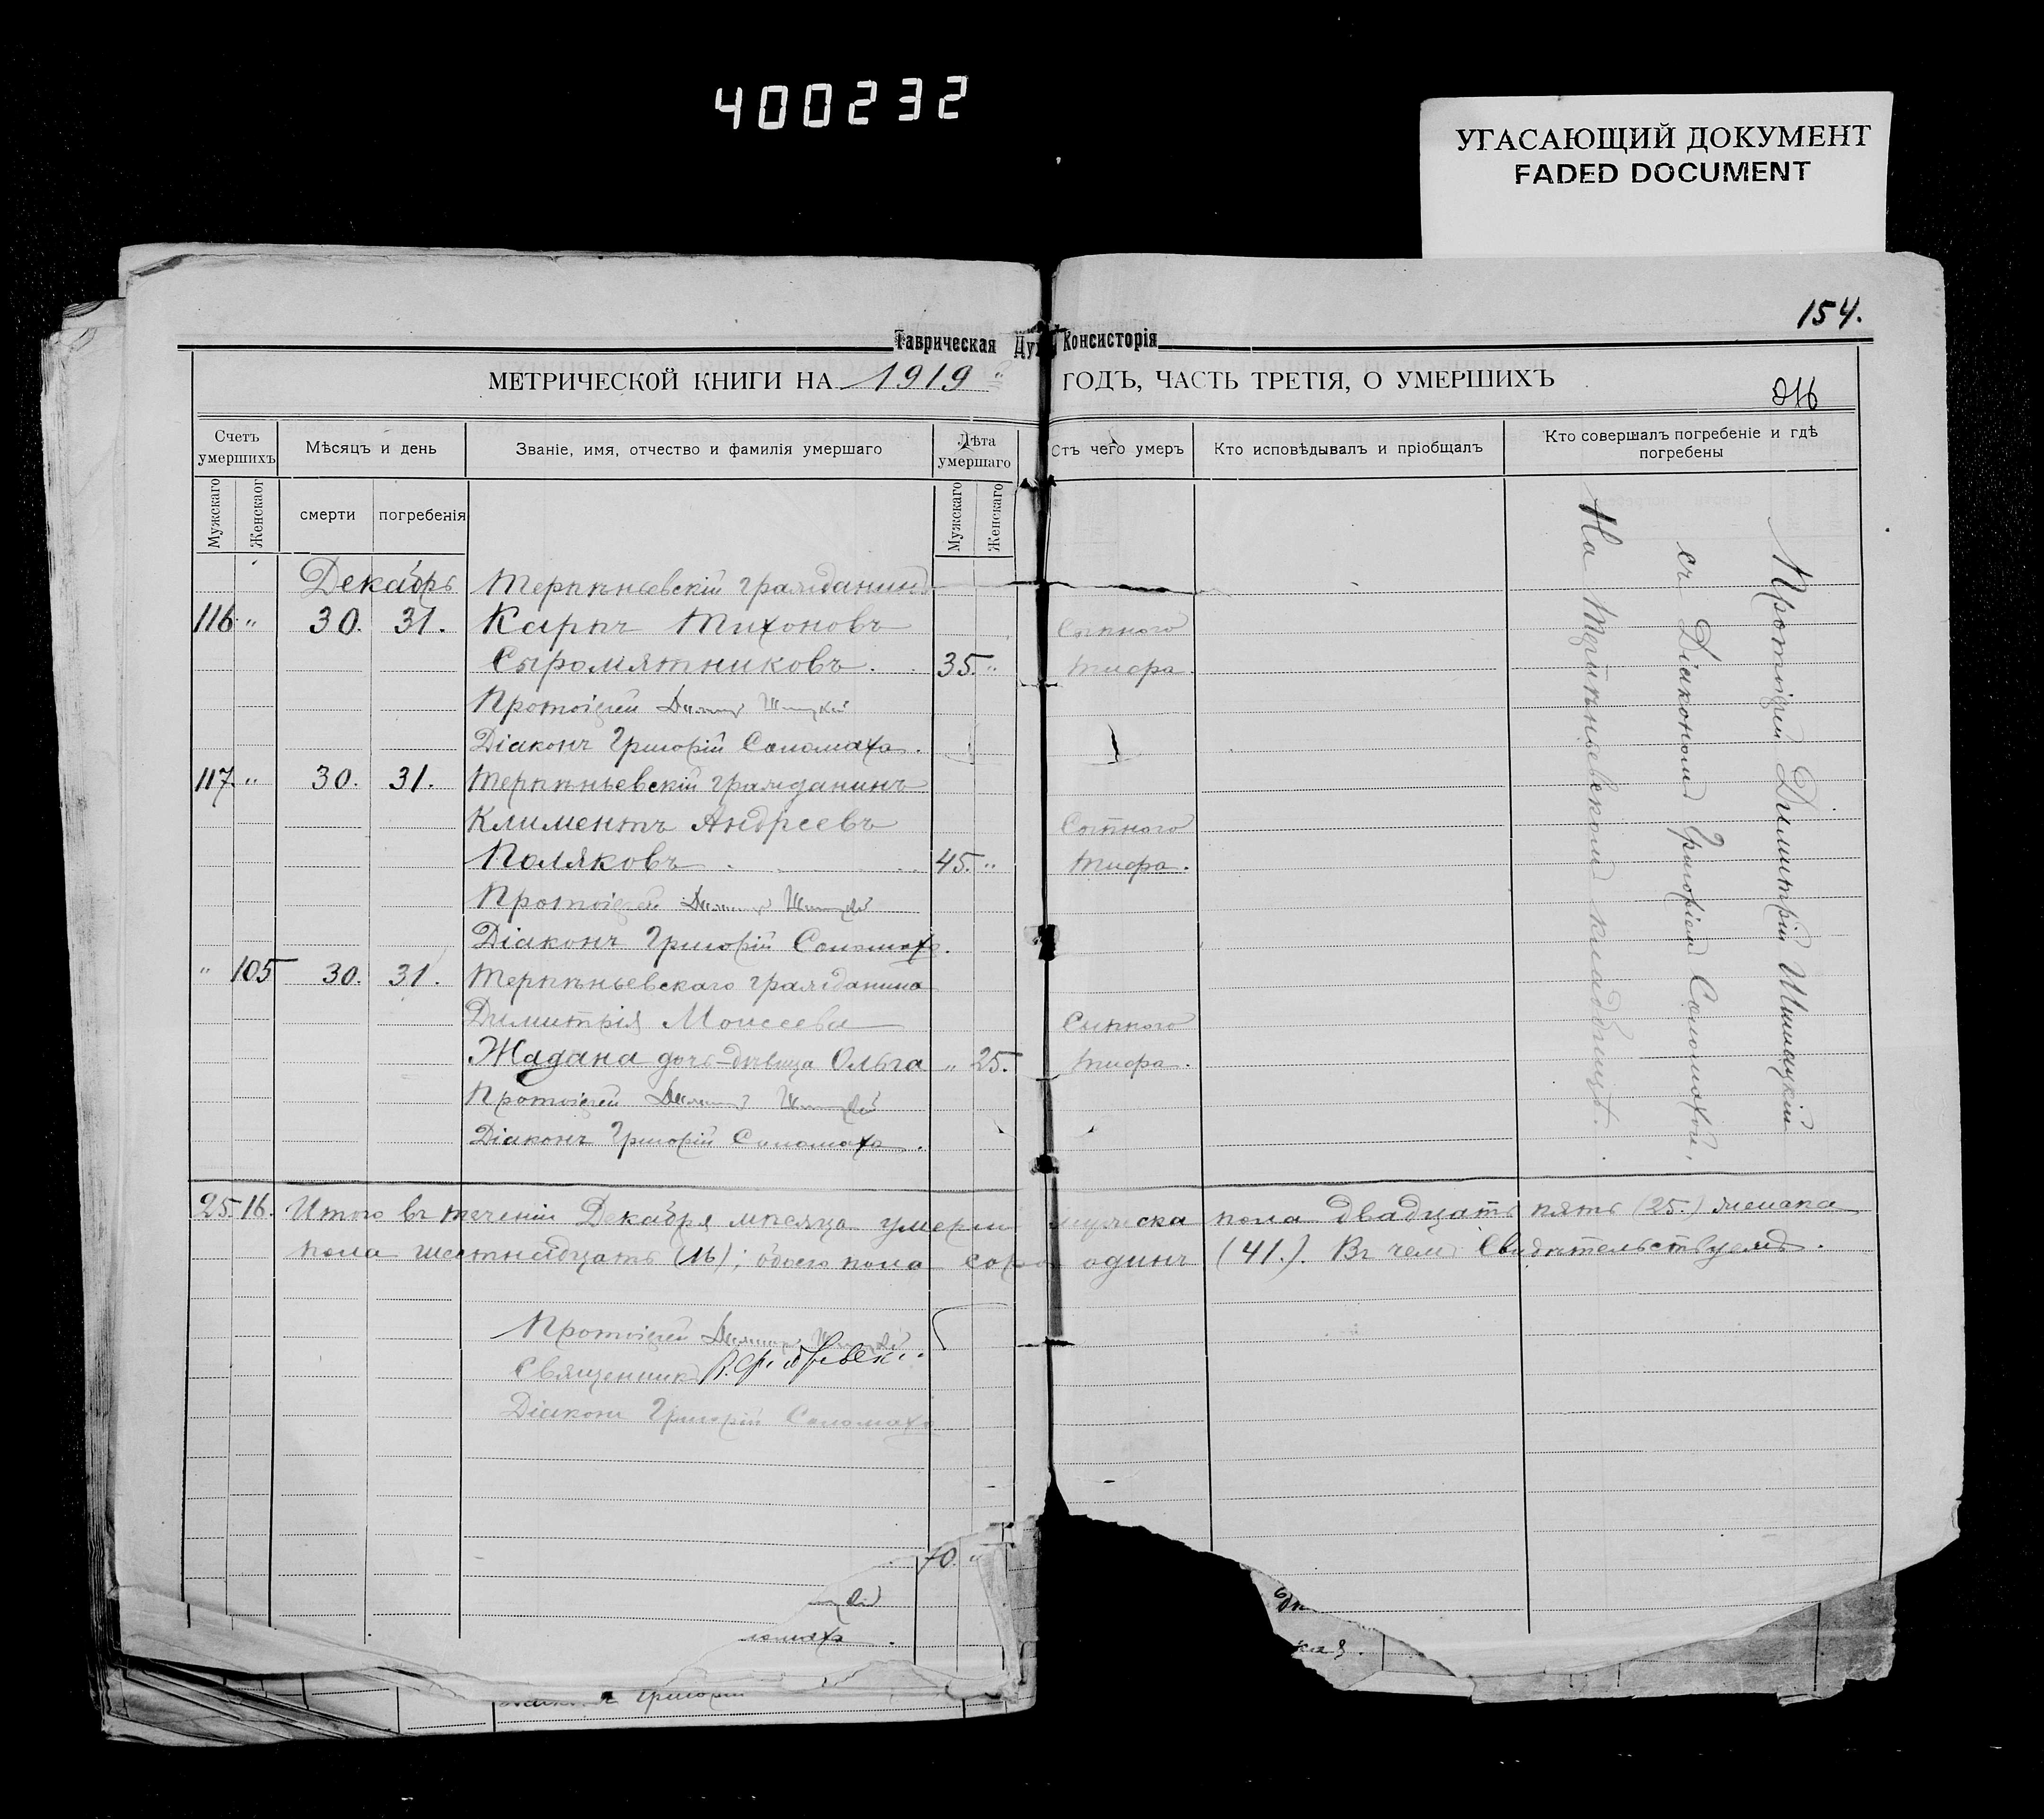 400232
УГАСАЮЩИЙ ДОКУМЕНТ
FADED DOCUMENT
154.
Таврическая Ду Консисторія
МЕТРИЧЕСКОЙ КНИГИ НА 1919 ГОДЪ, ЧАСТЬ ТРЕТІЯ, О УМЕРШИХЪ
Счетъ умершихъ
Мѣсяцъ и день
Званіе, имя, отчество и фамилія умершаго
Лѣта умершаго
Отъ чего умеръ
Кто исповѣдывалъ и пріобщалъ
Кто совершалъ погребеніе и гдѣ погребены
Мужскаго
Женскаог
смерти
погребенія
Мужскаго
Женскаго
Декабрь Терпѣньевскій гражданинъ
116 " 30. 31. Карпъ Тихоновъ Сыпного
Сыромятниковъ. 35. " тифа.
Протоіерей Димитрій Шпицкій
Діаконъ Григорій Соломаха.
117 " 30. 31. Терпѣньевскій гражданинъ
Климентъ Андреевъ Сыпного
Поляковъ 45. " тифа.
Протоіерей Димитрій Шпицкій
Діаконъ Григорій Соломаха.
" 105 30. 31. Терпѣньевскаго гражданина
Димитрія Моисеева Сыпного
Жадана дочь-дѣвица Ольга " 25. тифа.
Протоіерей Димитрій Шпицкій
Діаконъ Григорій Соломаха.
Протоіерей Димитрій
съ Діакономъ Григоріемъ Соломахой.
На Терпѣньевскомъ кладбищѣ.
25. 16. Итого въ теченіи Декабря мѣсяца умерли мужеска пола двадцать пять (25.) женска
пола шестнадцать (16); обоего пола сорокъ одинъ (41.). Въ чемъ свидѣтельствуемъ.
Протоіерей Димитрій Шпицкій
Священникъ
Діаконъ Григорій Соломаха
70. "
ломаха.
Григорій
ная.